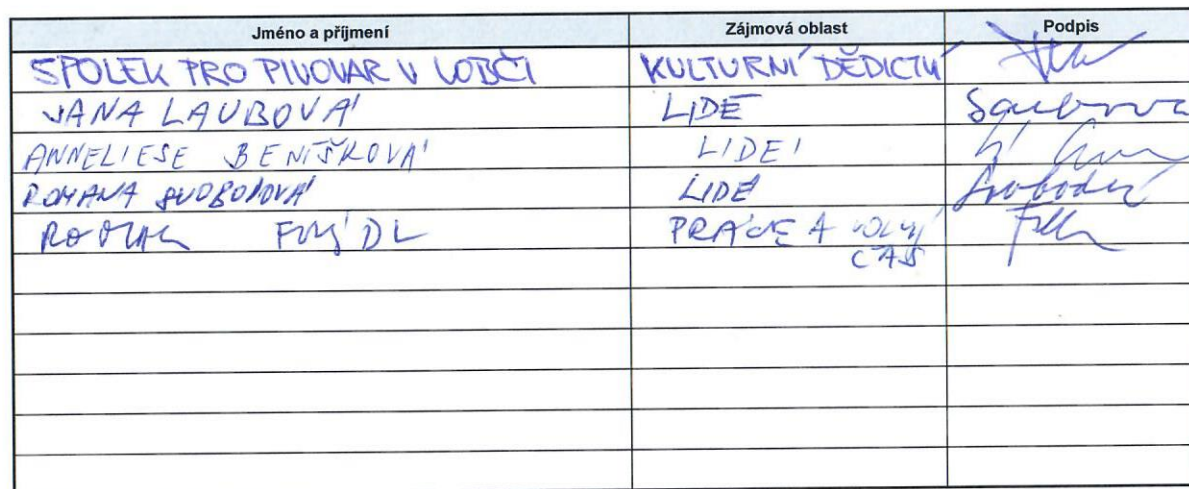 Jméno a příjmení Zájmová oblast Podpis
SPOLEK PRO PIVOVAR V LOBČI KULTURNÍ DĚDICTV
JANA LAUBOVÁ LIDÉ Laubova
ANNELIESE BENIŠKOVÁ LIDÉ
ROMANA SVOBODOVÁ LIDÉ
PRÁCE A VOLNÝ
ČAS